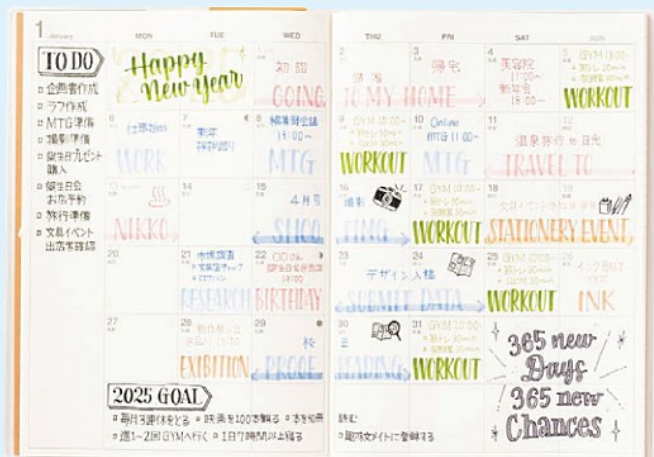 1 January
MON TUE WED THU FRI SAT SUN
TO DO
企画書作成
ラフ作成
MTG準備
撮影準備
誕生日プレゼント
購入
誕生日会
お店予約
旅行準備
文具イベント
出店者確認
Happy
New Year
2025
1
初詣
GOING
2
帰省
TO MY HOME
3
帰宅
4
美容院
11:00~
新年会
18:00~
5
GYM 18:00~
WORKOUT
6
仕事始め
WORK
7
新年
挨拶回り
8
編集部会議
13:00~
MTG
9
GYM 18:00~
WORKOUT
10
Online
MTG 11:00~
MTG
11
12
温泉旅行 to 日光
TRAVEL TO
13
NIKKO
14
15
4月号
SHOO
16
撮影
TING
17
GYM 18:00~
WORKOUT
18
19
STATIONERY EVENT
20
21
市場調査
RESEARCH
22
誕生日会
18:00
BIRTHDAY
23
24
デザイン入稿
SUBMIT DATA
25
WORKOUT
26
INK
27
28
EXIBITION
29
校
PROOF
30
正
READING
31
GYM 18:00~
WORKOUT
365 new
Days
365 new
Chances
2025 GOAL
毎月3連休をとる 映画を100本観る 本を10冊
読む
週1~2回GYMへ行く 1日7時間以上寝る